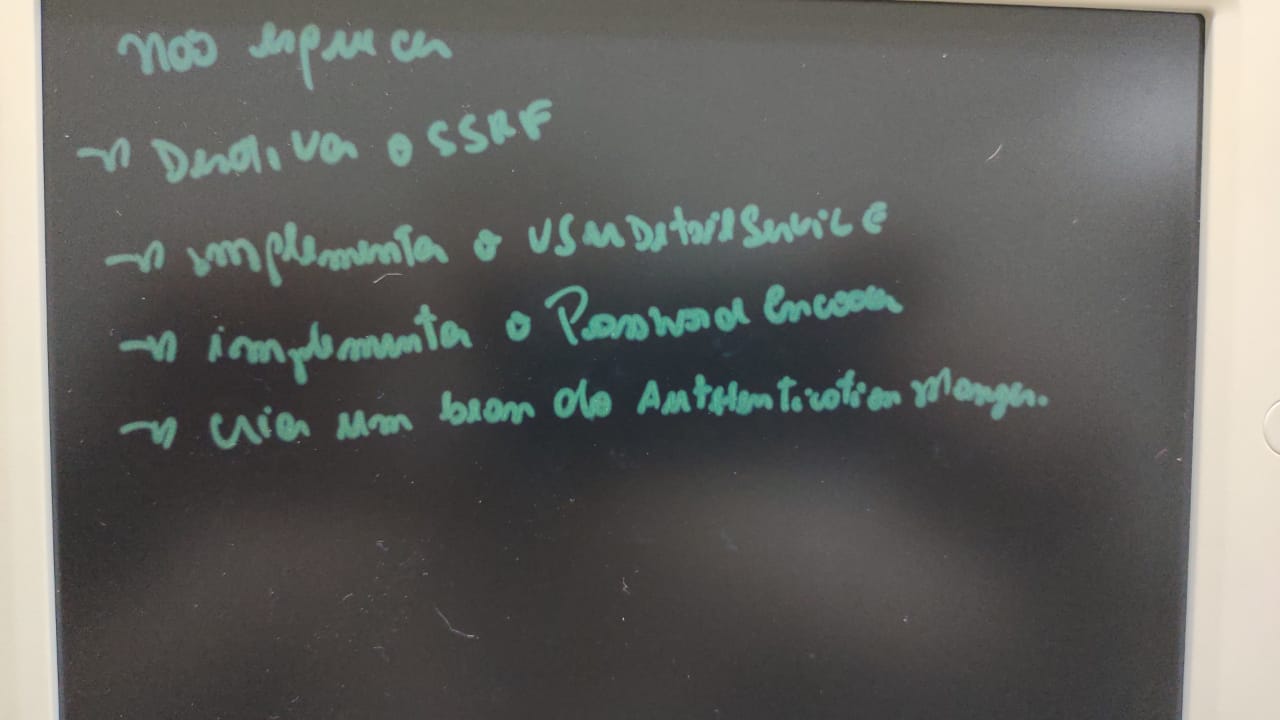 não esquecer
→ Desativar o SSRF
→ implementar o USerDetailService
→ implementar o Password Encoder
→ criar um bean do Authentication Manager.